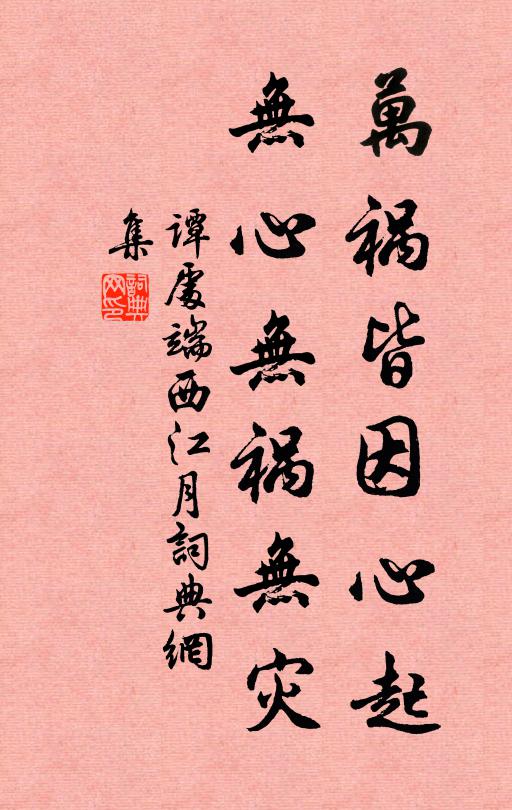 萬禍皆因心起
無心無禍無灾
谭處端西江月詞典網
集
詞典網印